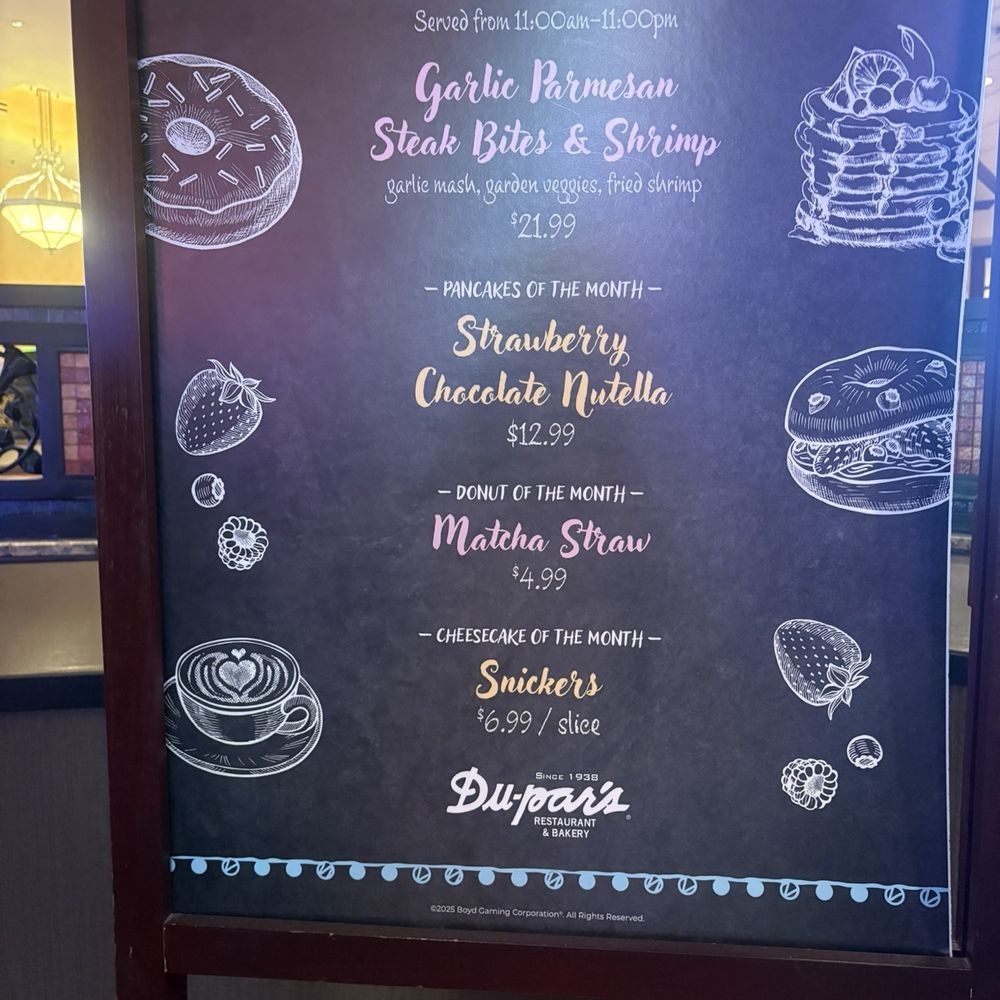 Served from 11:00am–11:00pm
Garlic Parmesan
Steak Bites & Shrimp
garlic mash, garden veggies, fried shrimp
$21.99
– PANCAKES OF THE MONTH –
Strawberry
Chocolate Nutella
$12.99
– DONUT OF THE MONTH –
Matcha Straw
$4.99
– CHEESECAKE OF THE MONTH –
Snickers
$6.99 / slice
SINCE 1938
Du-par's®
RESTAURANT
& BAKERY
©2025 Boyd Gaming Corporation®. All Rights Reserved.